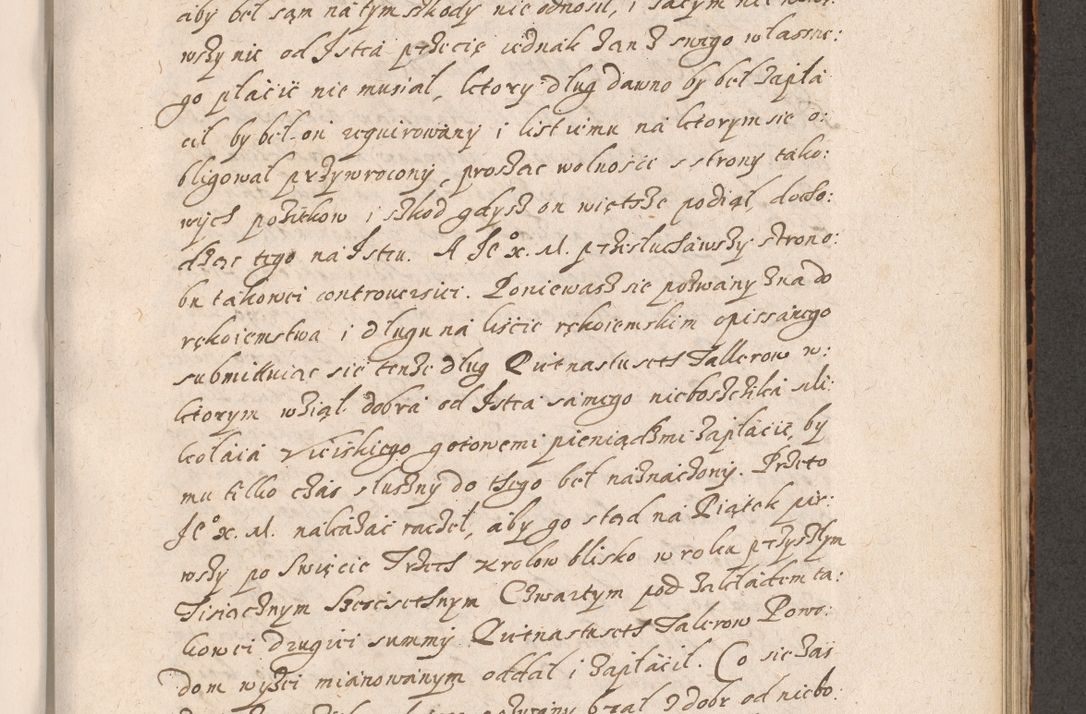 aby beł sąm na tym szkody nie odnosił, i sąłym nie
wszy nic od Jstca przecię iednak zan z swego własne:
go płacić nie musiał, ktory dług dawno by beł zapła
cił, by beł on requirowany i list iemu na ktorym się o:
bligował przywrocony, prosząc wolnosce s strony tako:
wych pożitkow i szkod gdysz on więtsze podiął, docho:
dząc tego na Jstcu. A Je° x. M. przesłuchawszy strono:
bu takowei controuersiei. Poniewasz się pozwany zna do
rękoiemstwa i długu na liscie rękoiemskim opissanego
submittuiąc się tenze dług Piętnastuseth Tallerow w:
ktorym wziął dobra od Jstca samego nieboszczika Mi:
kołaia gotowemi pieniądzmi zapłacić, by
mu tilko czas słuszny do thego beł naznaczony. Przeto
Je° x. M. nakazać raczeł, aby go stąd na Piątek pir:
wszy po Swięcie Trzech Krolow blisko w roku przyszłym
Tisiącznym Szescsethnym Czwartym pod zakładem ta:
kowei drugiei summy Piętnastuseth Talerow Powo:
dom wyszei mianowanym oddał i zapłacił. Co się zas